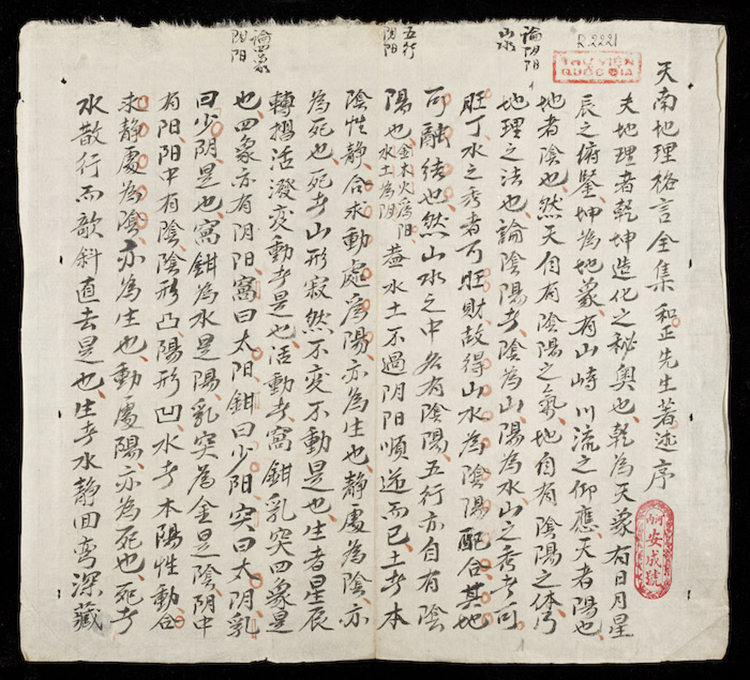 R.2221
THƯ VIỆN
QUỐC GIA
天南地理格言全集 和正先生著述序
夫地理者乾坤造化之秘奧也乾為天象有日月星
辰之俯鑒坤為地象有山峙川流之仰應天者陽也
地者陰也然天自有陰陽之氣地自有陰陽之体乃
論阴阳
山水
地理之法也論陰陽者陰為山陽為水山之秀者可
旺丁水之秀者可旺財故得山水為陰陽配合其地
可融結也然山水之中各有陰陽五行亦自有陰
五行
阴阳
陽也金木火為阳水土為阴蓋水土不過阴阳順逆而已土者本
陰性静合求動處為陽亦為生也静處為陰亦
為死也死者山形寂然不变不動是也生者星辰
轉摺活潑变動者是也活動者窩鉗乳突四象是
論四象
阴阳
也四象亦有阴阳窩曰太阳鉗曰少阳突曰太阴乳
曰少阴是也窩鉗為水是陽乳突為金是陰阴中
有阳阳中有陰陰形凸陽形凹水者本陽性動合
求静處為陰亦為生也動處陽亦為死也死者
水散行而欹斜直去是也生者水静回弯深藏
安成號